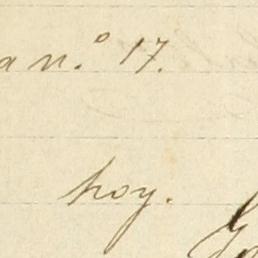 a n.º 17.
hoy.